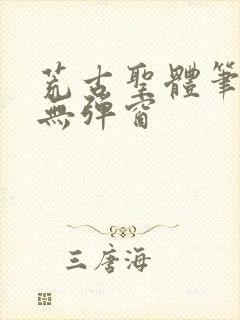 荒古聖體筆
無彈窗
三唐海